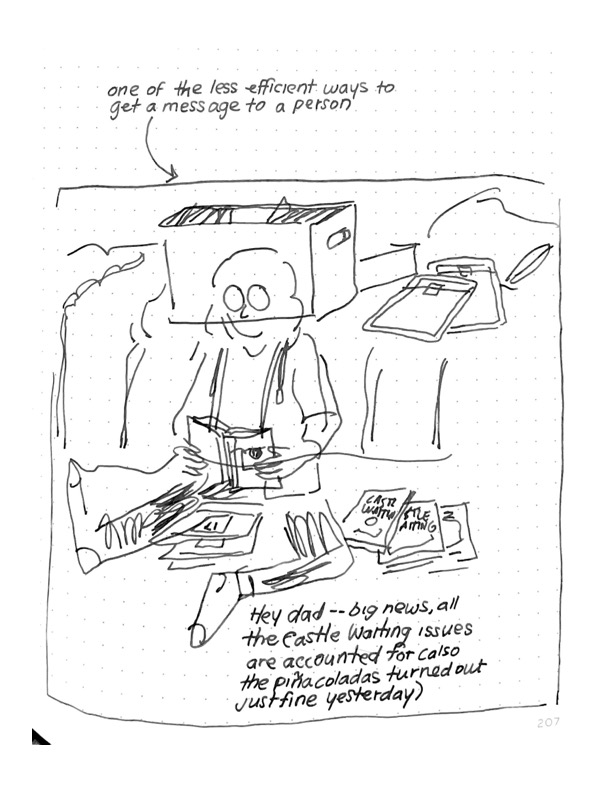 one of the less efficient ways to
get a message to a person
CASTL
WAITIN
STLE
AITING
Hey dad -- big news, all
the Castle Waiting issues
are accounted for (also
the piña coladas turned out
just fine yesterday)
207